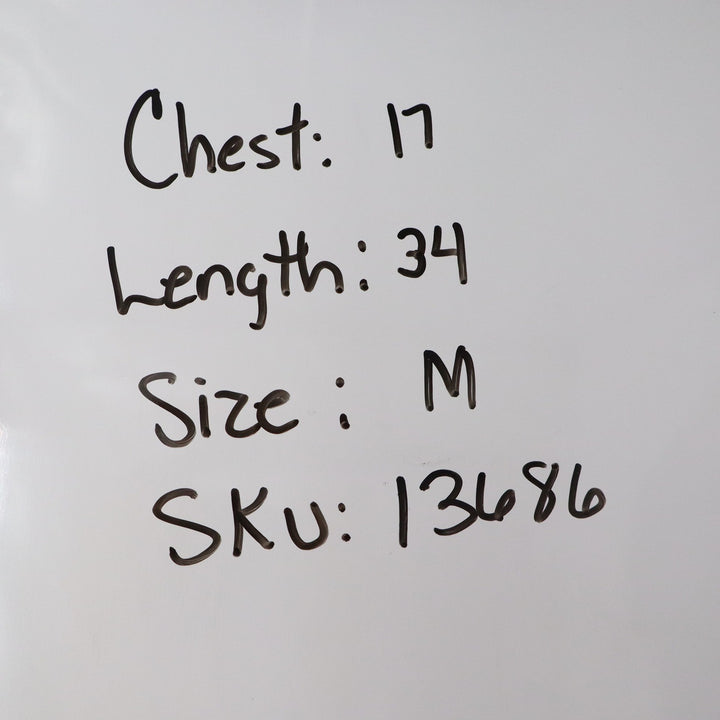 Chest: 17
Length: 34
Size: M
SKU: 13686